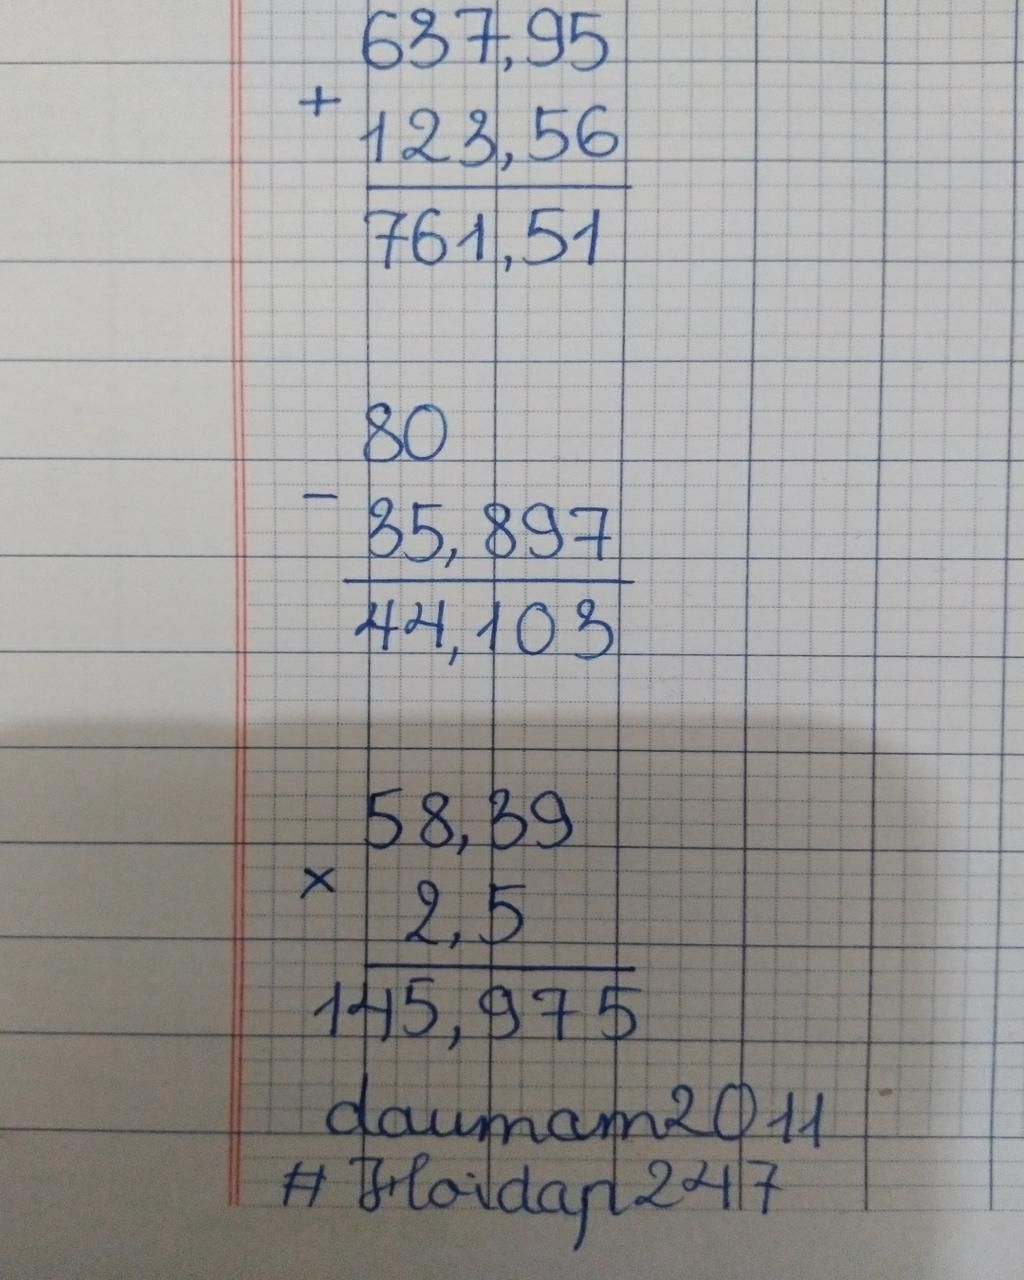 637,95
+
123,56
761,51
80
-
35,897
44,103
58,39
×
2,5
145,975
daumam2011
# Hoidap247